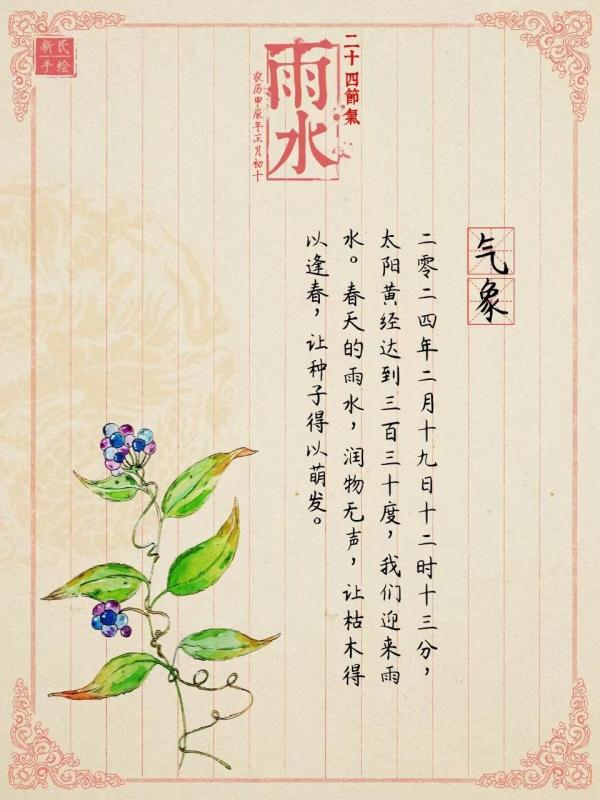 新氏
手绘
二十四節氣
雨水
农历甲辰年正月初十
气象
二零二四年二月十九日十二时十三分，
太阳黄经达到三百三十度，我们迎来雨
水。春天的雨水，润物无声，让枯木得
以逢春，让种子得以萌发。